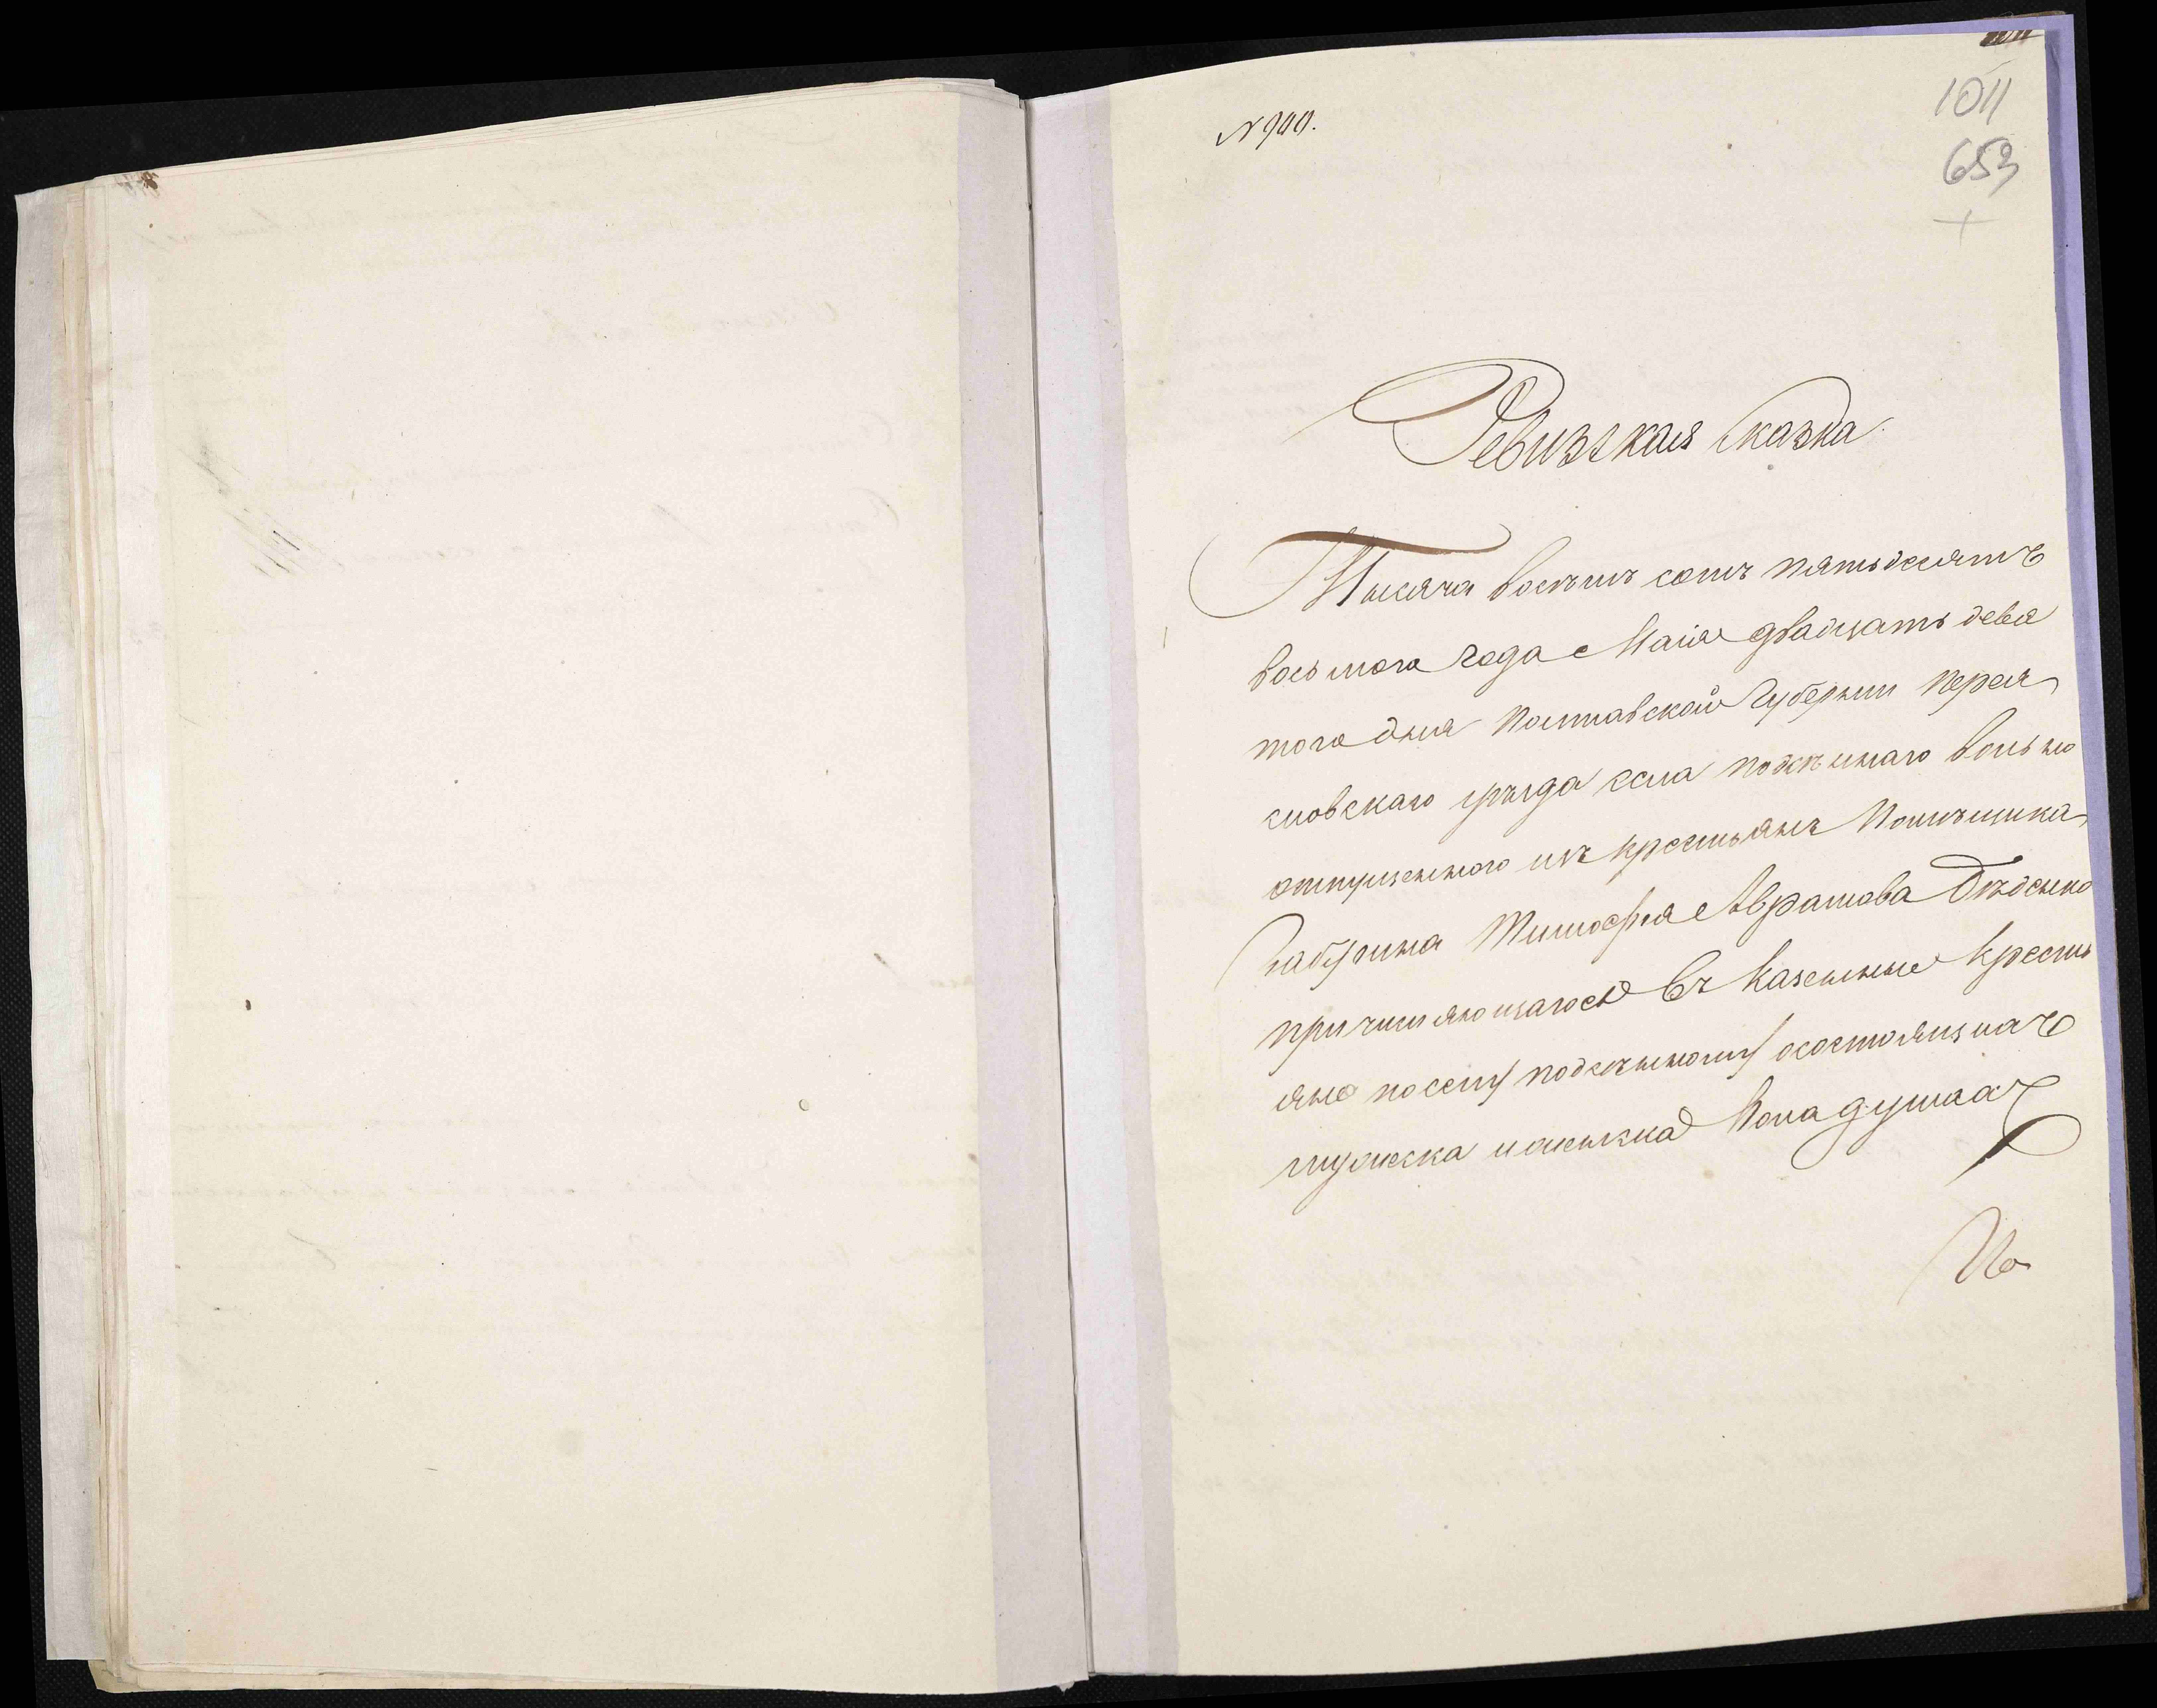 N 900.
1011
653
Ревизская Сказка
Тысяча восѣмъ сотъ пятьдесятъ
восьмого года Маія двадцать девя
того дня Полтавской Губерніи перея
словскаго уѣзда села подсѣннаго вольно
отпущенного изъ крестьянъ Помѣщика
Тимофея Аврамова Бѣденко
причисляющагося въ казенные кресть
яне посему подсѣнному осостоящихъ
мужеска иженска Пола душахъ